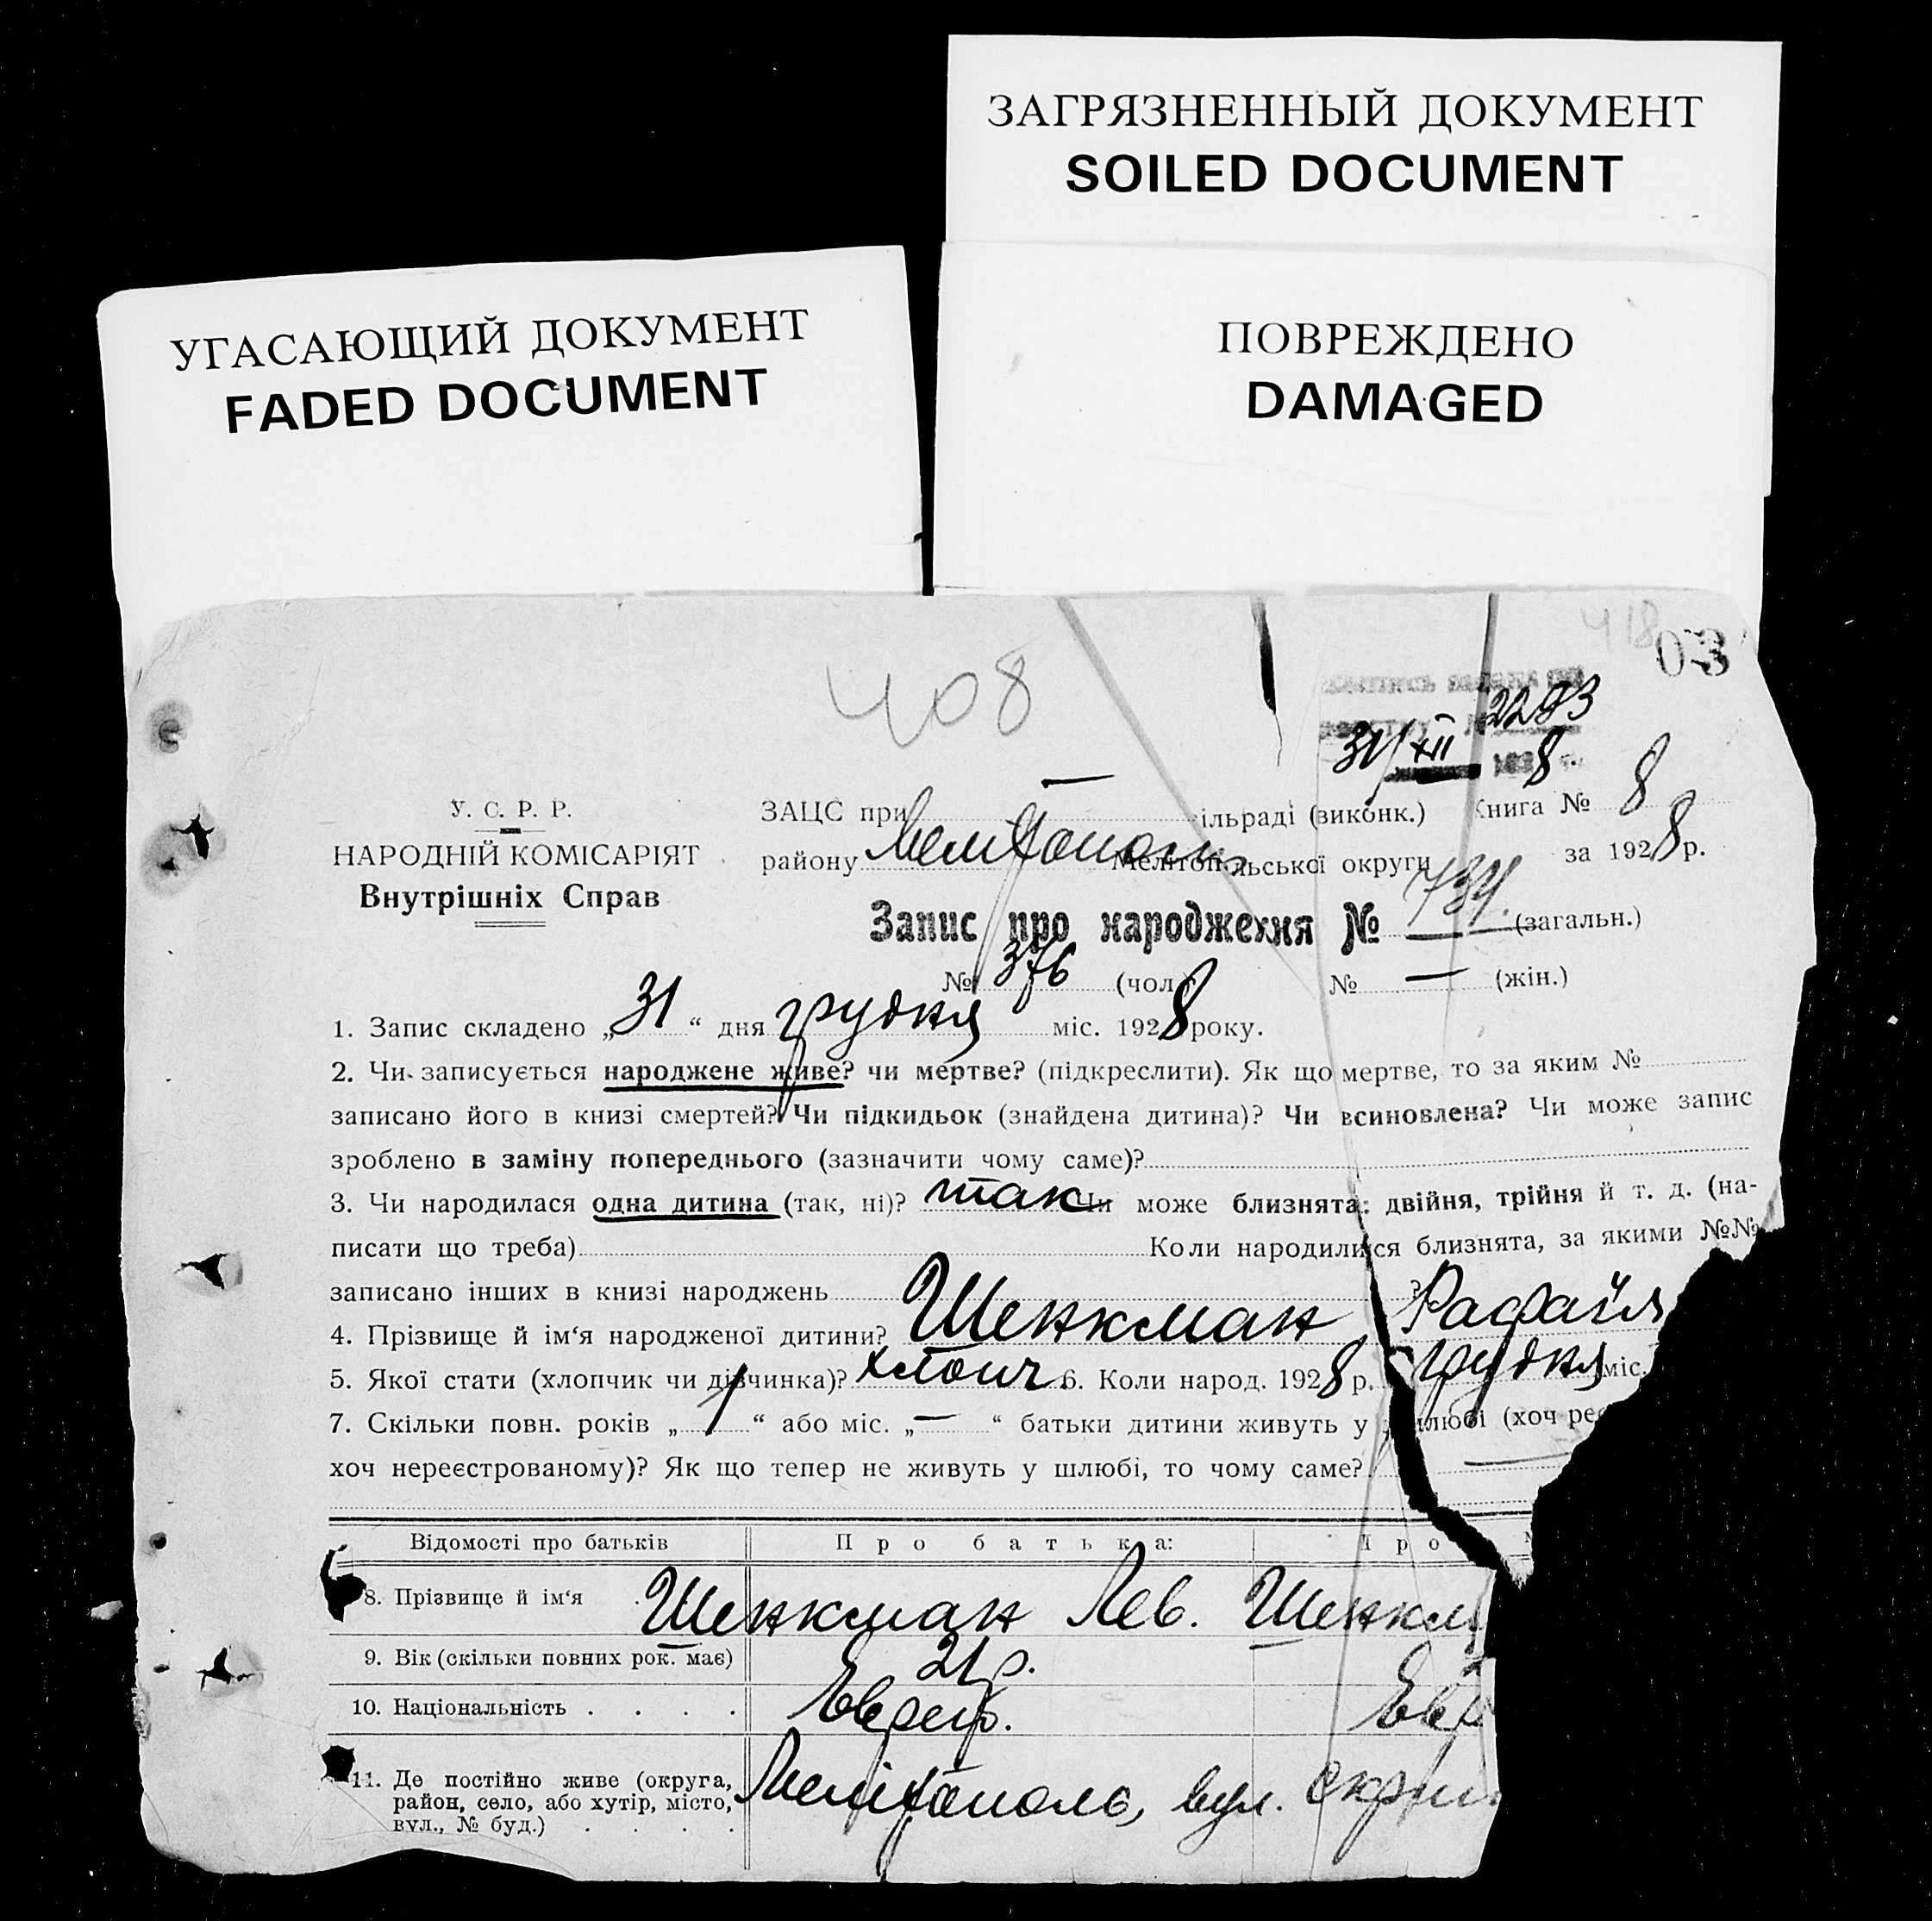 ЗАГРЯЗНЕННЫЙ ДОКУМЕНТ
SOILED DOCUMENT
УГАСАЮЩИЙ ДОКУМЕНТ
FADED DOCUMENT
ПОВРЕЖДЕНО
DAMAGED
418
03
408
2273
31/XII 8
У. С. Р. Р.
НАРОДНІЙ КОМІСАРІЯТ
Внутрішніх Справ
ЗАЦС при — ільраді (виконк.) Книга № 8
району Мелітополь Мелітопільської округи за 1928 р.
Запис про народження № 734. (загальн.)
№ 376 (чол.) № — (жін.)
1. Запис складено „31“ дня грудня міс. 1928 року.
2. Чи записується народжене живе? чи мертве? (підкреслити). Як що мертве, то за яким №
записано його в книзі смертей? Чи підкидьок (знайдена дитина)? Чи всиновлена? Чи може запис
зроблено в заміну попереднього (зазначити чому саме)?
3. Чи народилася одна дитина (так, ні)? так Чи може близнята: двійня, трійня й т. д. (на-
писати що треба) Коли народилися близнята, за якими №№
записано інших в книзі народжень ?
4. Прізвище й ім‘я народженої дитини? Шенкман Рафаїл
5. Якої стати (хлопчик чи дівчинка)? хлопч 6. Коли народ. 1928 р. грудня міс.
7. Скільки повн. років „1“ або міс. „—“ батьки дитини живуть у шлюбі (хоч ре
хоч нереєстрованому)? Як що тепер не живуть у шлюбі, то чому саме? —
Відомості про батьків Про батька: Про
8. Прізвище й ім‘я Шенкман Лев. Шенкм
9. Вік (скільки повних рок. має) 21 р. 2
10. Національність Еврей. Евр
11. Де постійно живе (округа, район, село, або хутір, місто, вул., № буд.) Мелітополь, вул.